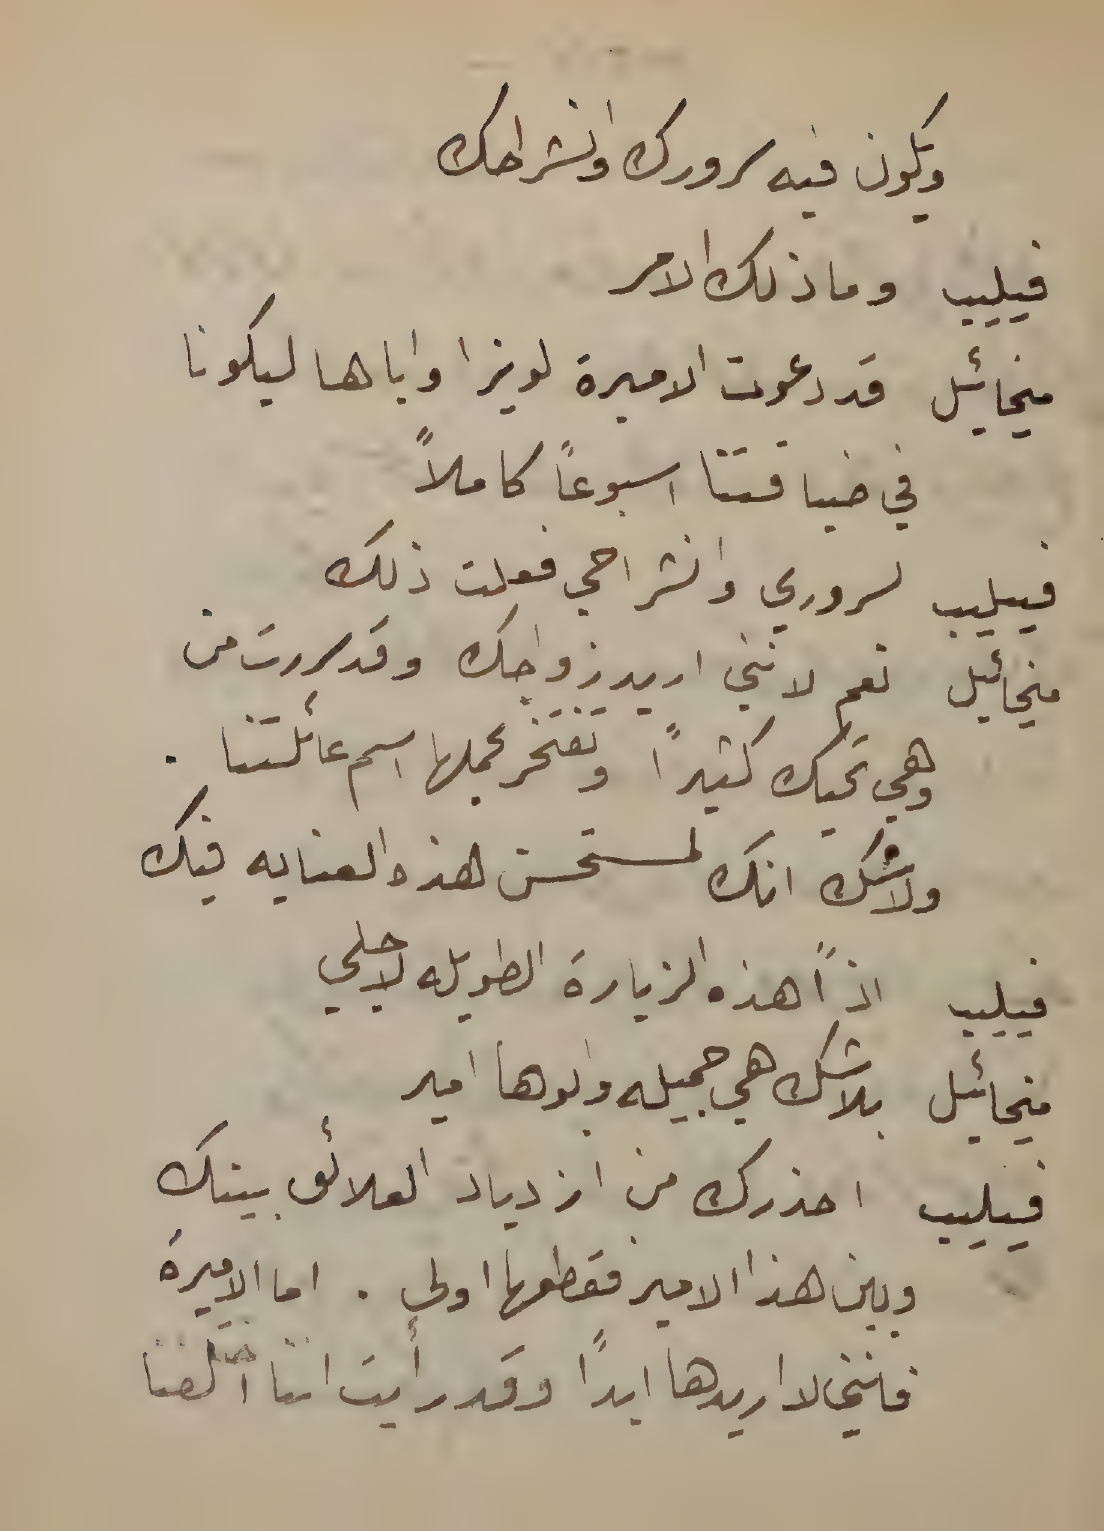 ويكون فيه سرورك وانشراحك
فيليب وما ذلك الامر
ميخائيل قد دعوت الاميرة لويزا واباها ليكونا
في ضيافتنا اسبوعاً كاملاً
فيليب لسروري وانشراحي فعلت ذلك
ميخائيل نعم لانني اريد زواجك وقد سررت من
وهي تحبك كثيراً وتفتخر بحملها اسم عائلتنا .
ولا شك انك لمستحسن هذه العنايه فيك
فيليب اذاً هذه الزيارة الطويله لاجلي
ميخائيل بلا شك هي جميله وابوها امير
فيليب احذرك من ازدياد العلائق بينك
وبين هذا الامير فقطعها اولى . اما الاميرة
فانني لا اريدها ابداً وقد رأيت اننا